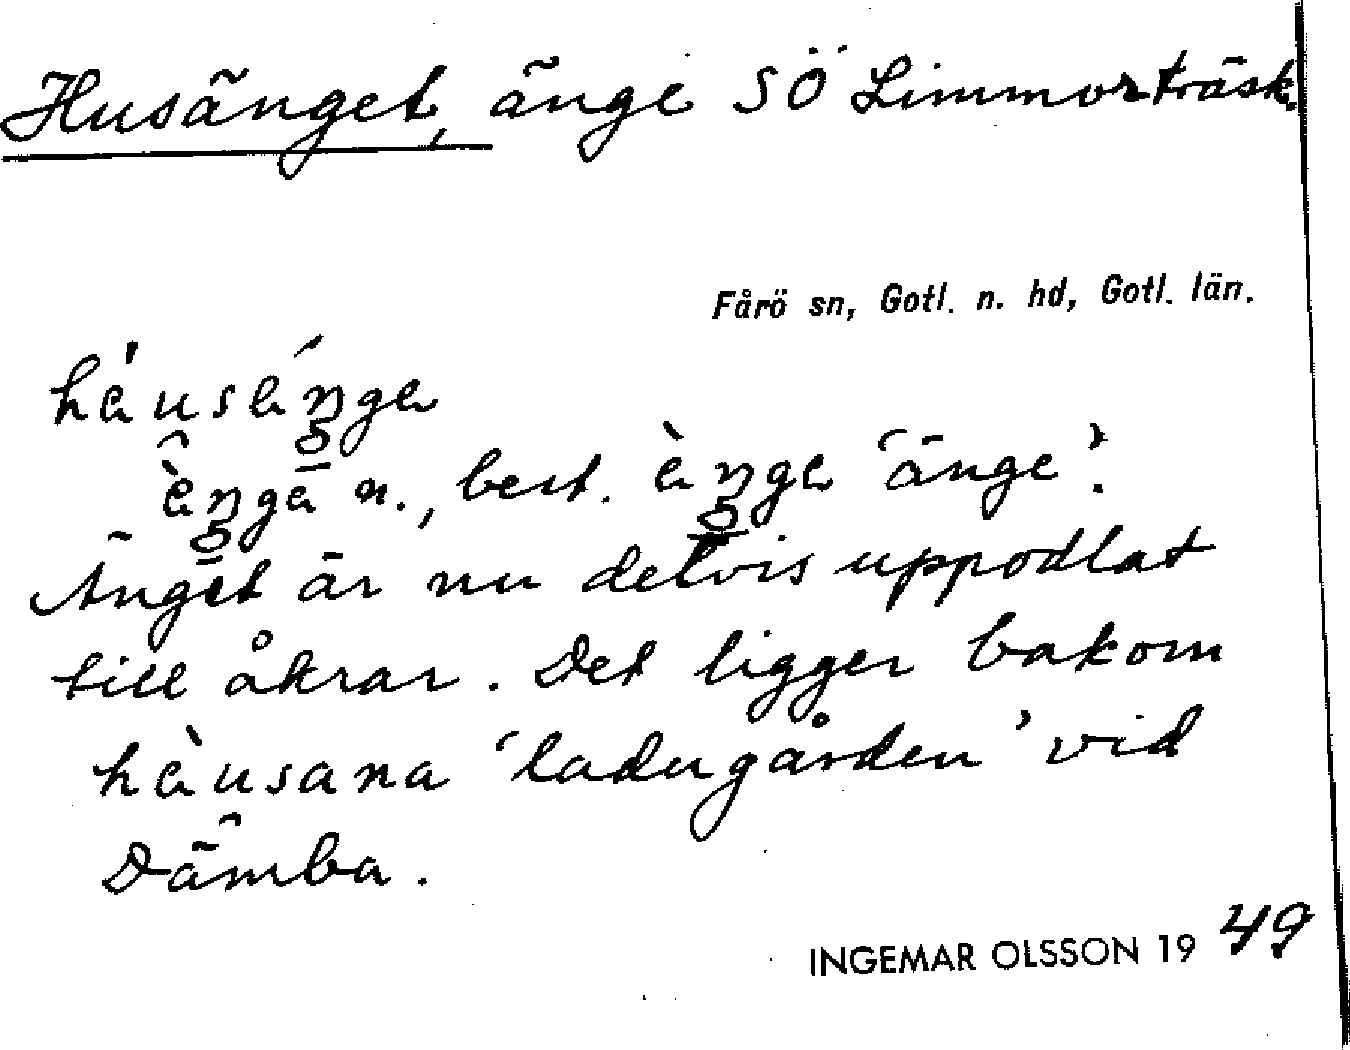 Husänget, änge SÖ Limmorträsk
Fårö sn, Gotl. n. hd, Gotl. län.
n., best. 'änge'.
Änget är nu delvis uppodlat
till åkrar. Det ligger bakom
hàusana 'ladugården' vid
Dämba.
INGEMAR OLSSON 1949